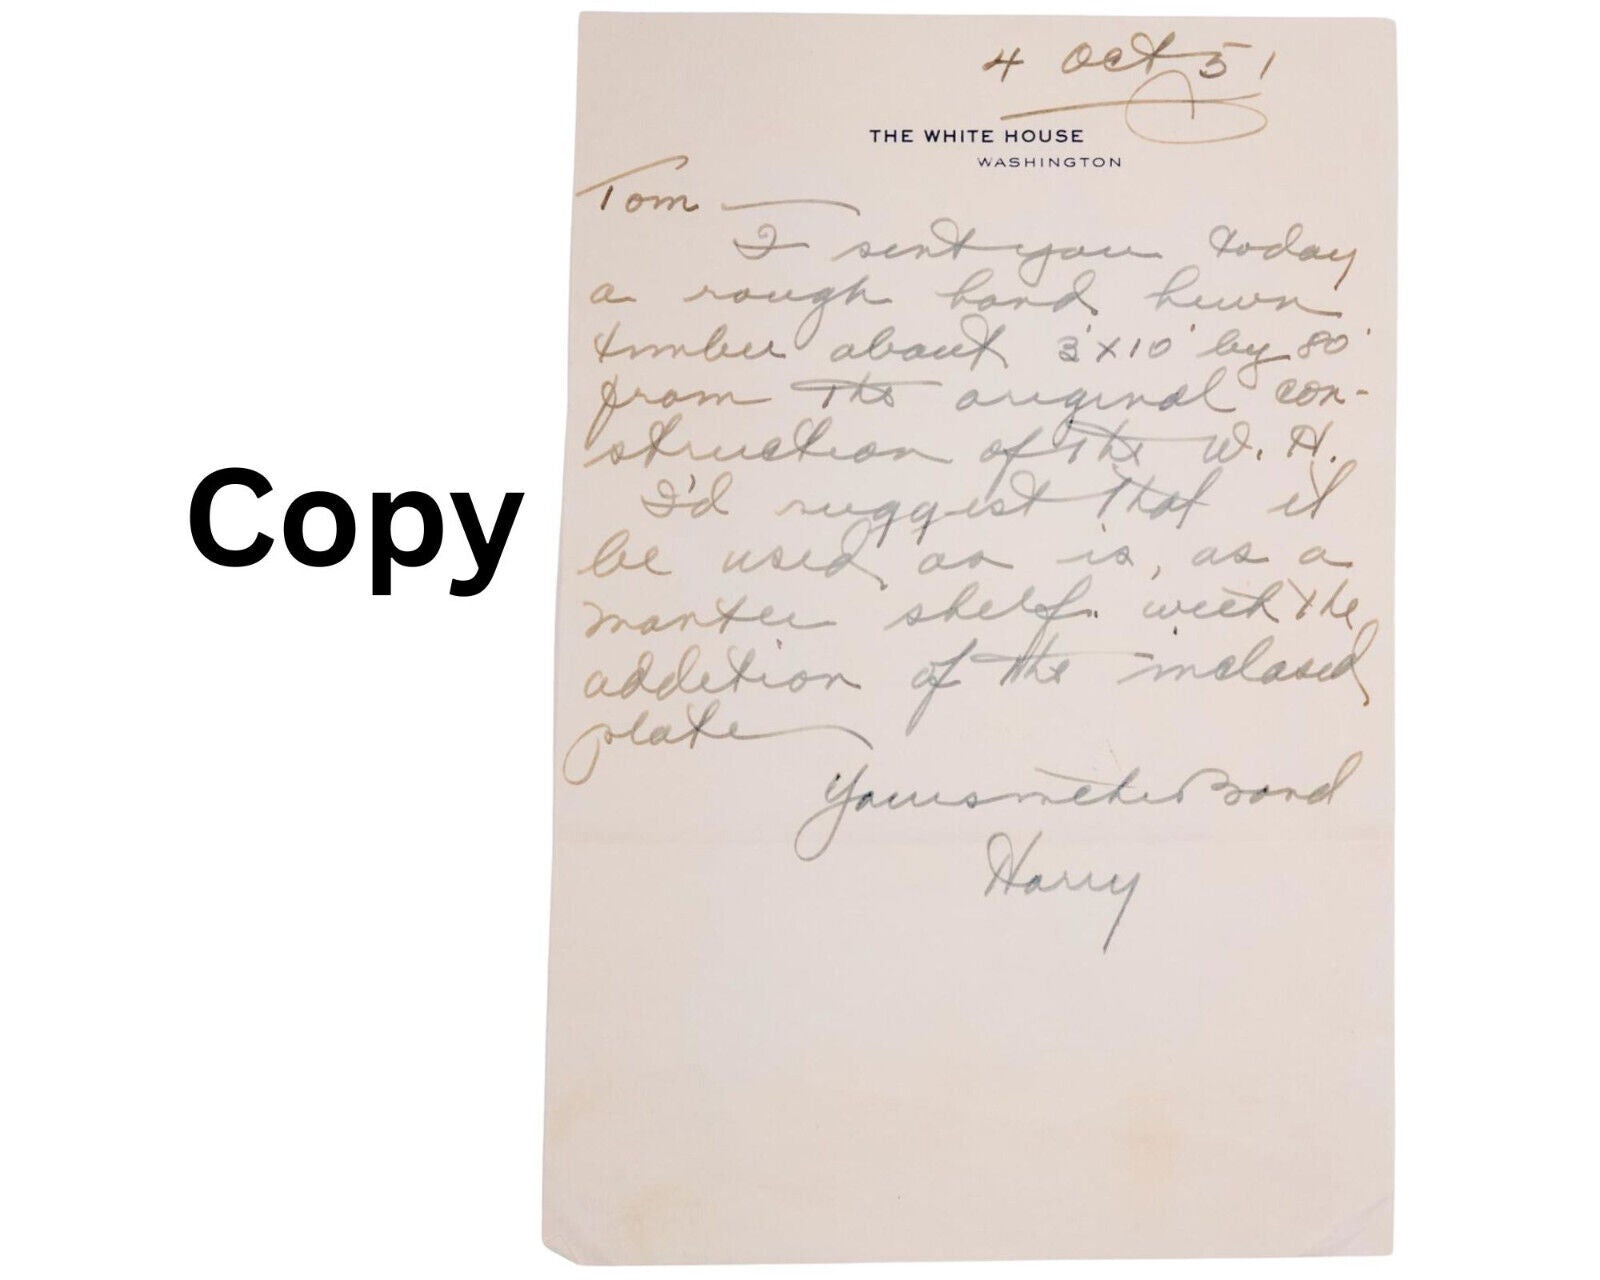 4 Oct 51
THE WHITE HOUSE
WASHINGTON
Tom
I sent you today
a rough hand hewn
timber about 3'x10' by 80'
from the original con-
struction of the W. H.
I'd suggest that it
be used as is, as a
mantel shelf with the
addition of the inclosed
plate
Copy
Yours
Harry